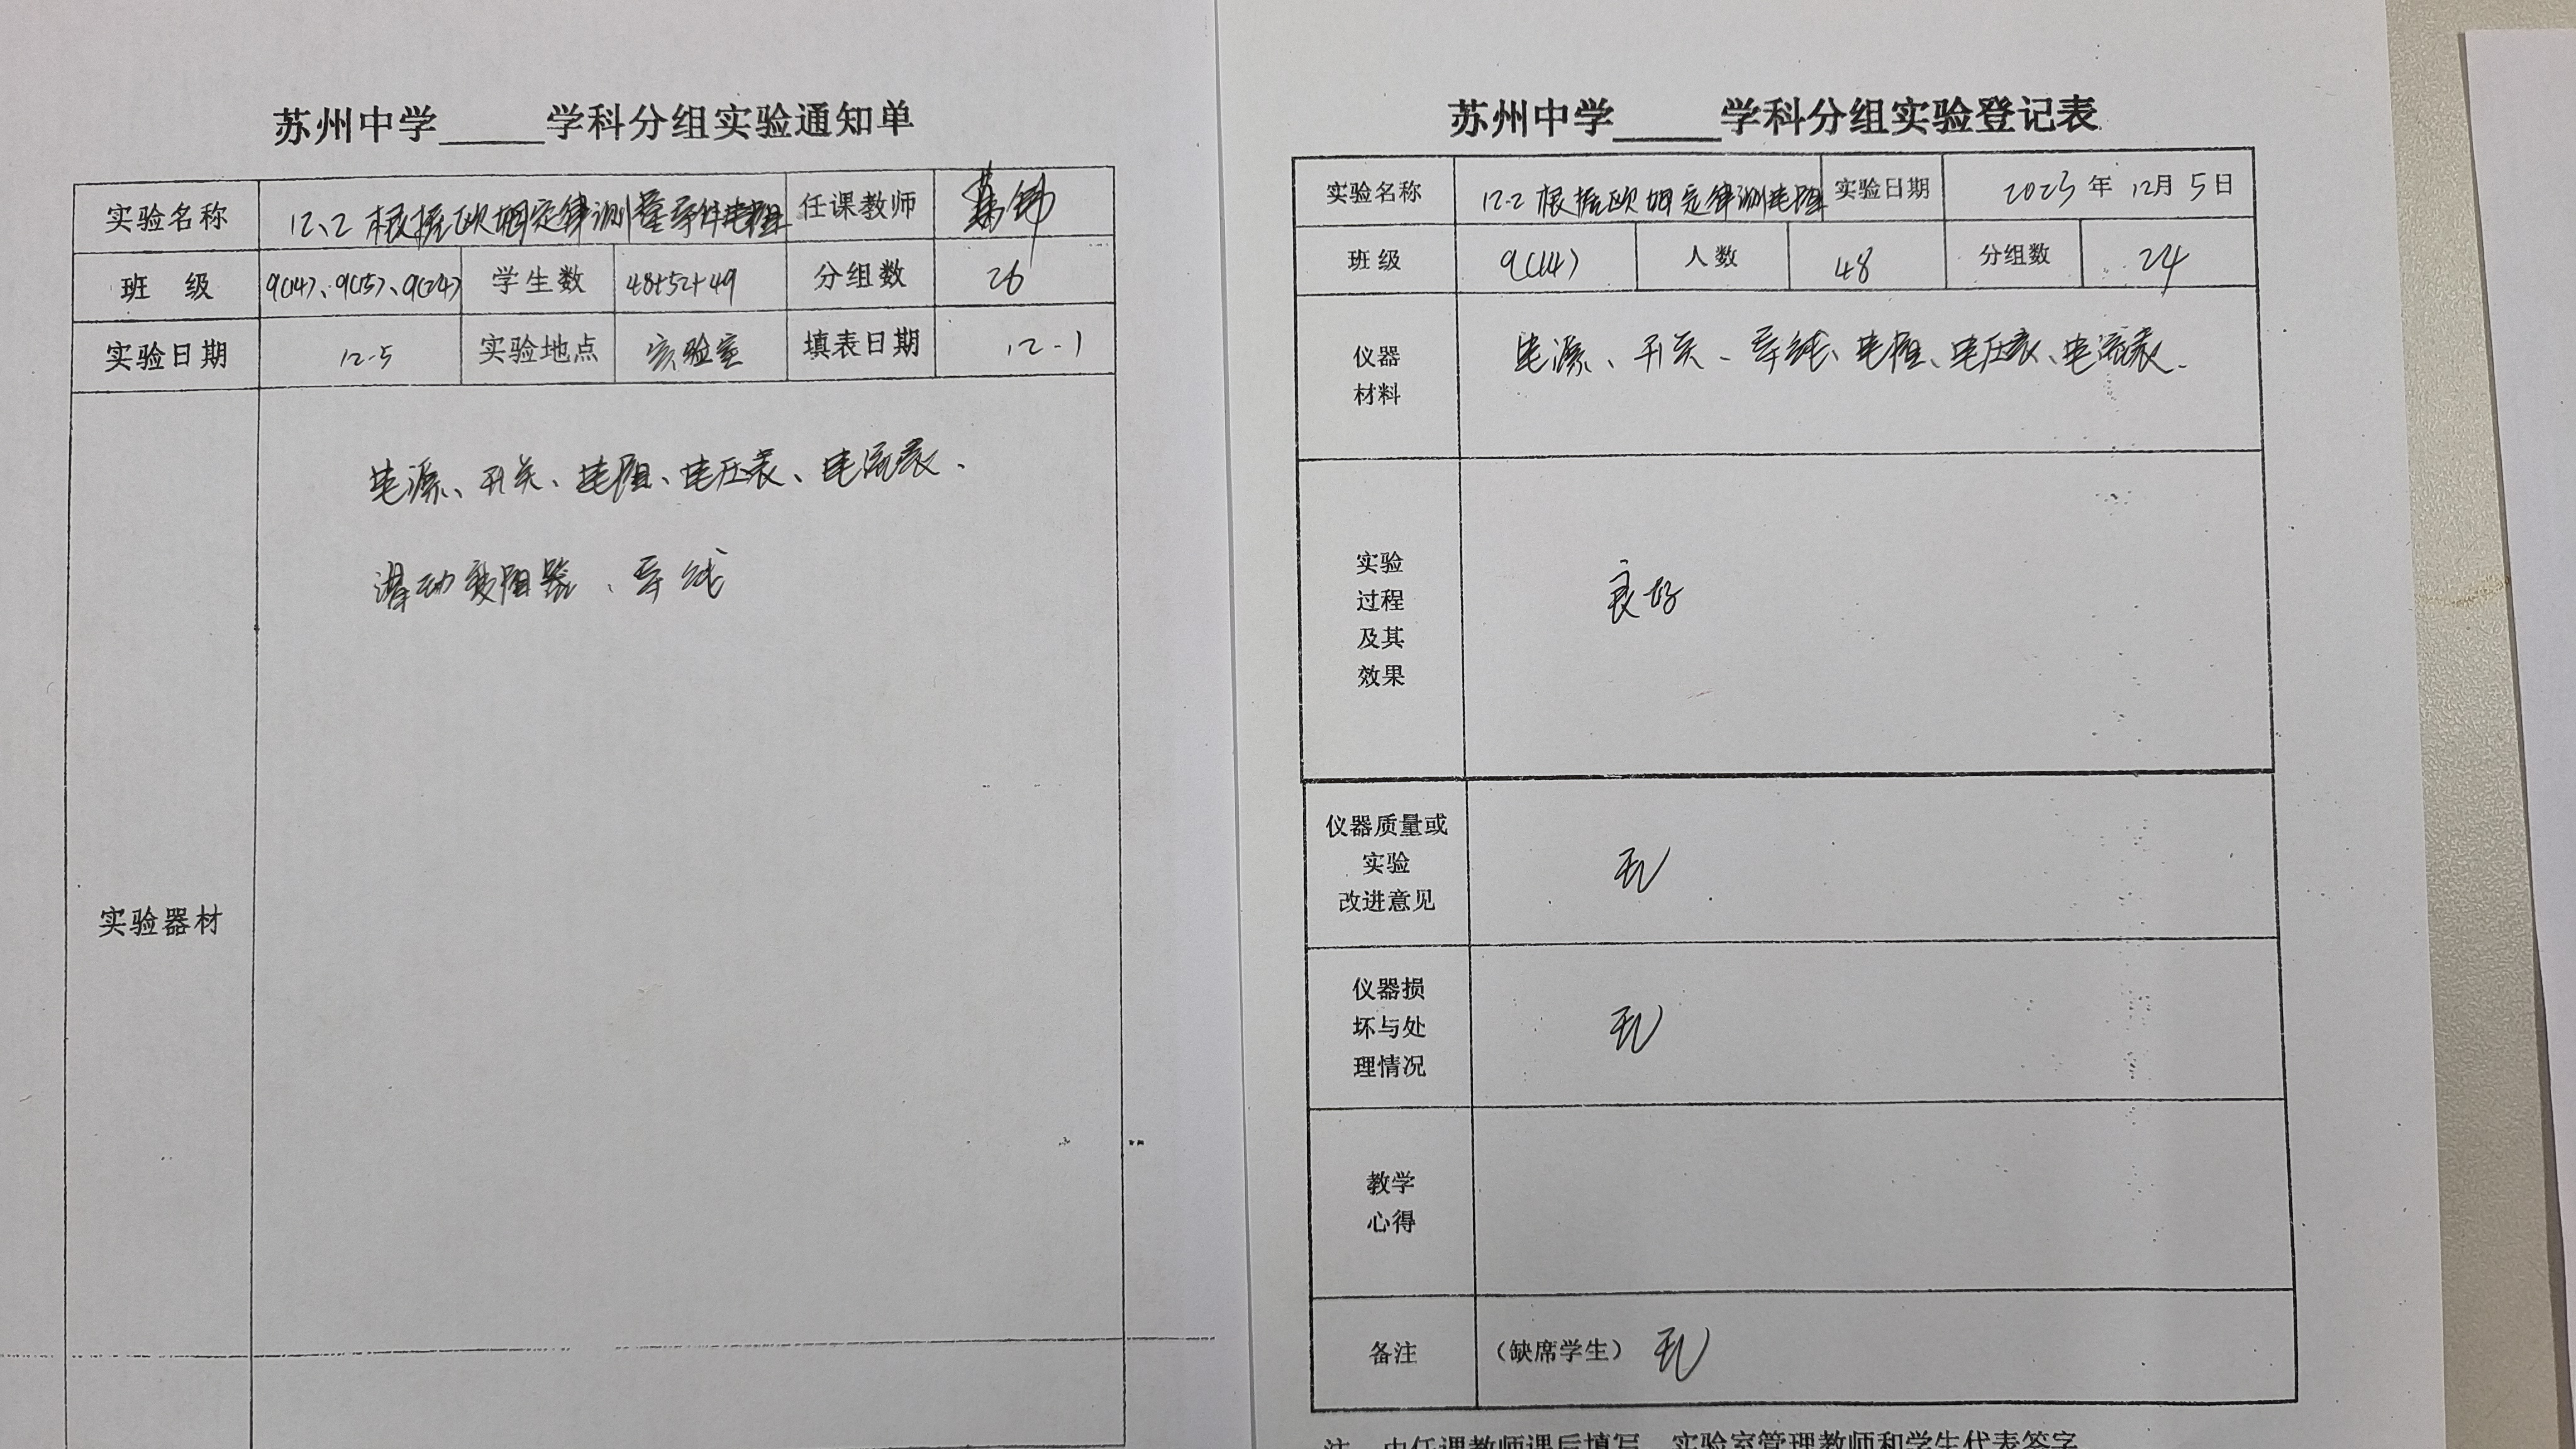 苏州中学_____学科分组实验通知单
实验名称 12.2 根据欧姆定律测量导体电阻 任课教师
班 级 9(14)、9(15)、9(24) 学生数 48+52+49 分组数 26
实验日期 12.5 实验地点 实验室 填表日期 12.1
实验器材
电源、开关、电阻、电压表、电流表、
滑动变阻器、导线
苏州中学_____学科分组实验登记表
实验名称 12.2 根据欧姆定律测电阻 实验日期 2023年 12月 5日
班级 9(14) 人数 48 分组数 24
仪器
材料
电源、开关、导线、电阻、电压表、电流表.
实验
过程
及其
效果
良好
仪器质量或
实验
改进意见
无
仪器损
坏与处
理情况
无
教学
心得
备注 (缺席学生) 无
注 由任课教师课后填写 实验室管理教师和学生代表签字